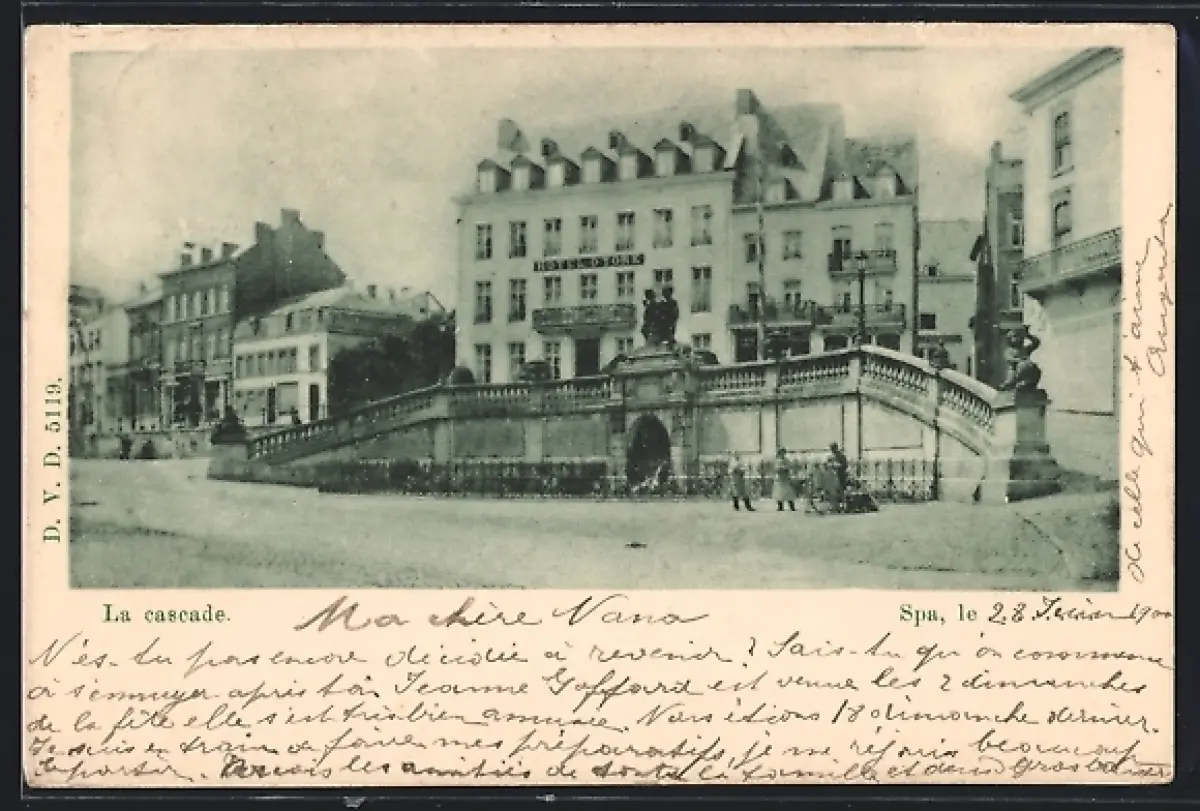 HOTEL D'YORK
D. V. D. 5119.
La cascade.
Spa, le 28 Juin 1900
Ma chère Nana
N'es-tu pas encore décidée à revenir? Sais-tu qu'on commence
à s'ennuyer après toi. Jeanne Goffard est venue les 2 dimanches
de la fête elle s'est très bien amusée. Nous étions 18 dimanche dernier.
Je suis en train de faire mes préparatifs, je me réjouis beaucoup
de partir. Reçois les amitiés de toute la famille et deux gros baisers
de celle qui t'aime